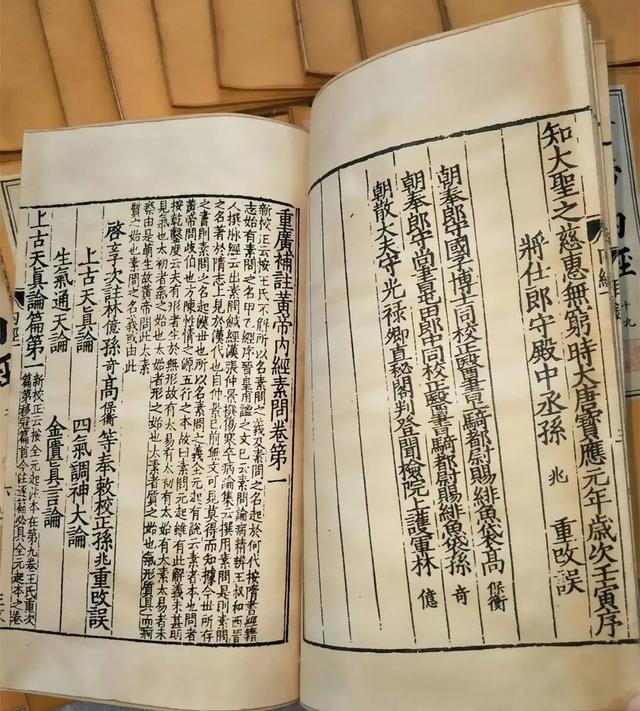 知大聖之慈惠無窮時大唐寶應元年歲次壬寅序
將仕郎守殿中丞孫 兆 重改誤
朝奉郎守國子博士同校正毉書上騎都尉賜緋魚袋高 保衡
朝奉郎守尚書屯田郎中同校正毉書騎都尉賜緋魚袋孫 奇
朝散大夫守光祿卿直秘閣判登聞檢院上護軍林 億
重廣補註黃帝內經素問卷第一
新校正云按王氏不解所以名素問之義及素問之名起於何代按隋書經籍
志始有素問之名甲乙經序晉皇甫謐之文已云素問論病精辨王叔和西晉
人撰脉經云出素問鍼經漢張仲景撰傷寒卒病論集云撰用素問是則素問
之名著於隋志上見於漢代也自仲景已前無文可見莫得而知據今世所存
之書則素問之名起漢世也所以名素問之義全元起有說云素者本也問者
黃帝問歧伯也方陳性情之源五行之本故曰素問元起雖有此解義未甚明
按乾鑿度云夫有形者生於無形故有太易有太初有太始有太素太易者未
見氣也太初者氣之始也太始者形之始也太素者質之始也氣形質具而痾
瘵由是萌生故黃帝問此太素
質之始也素問之名義或由此
啓玄子次註林億孫奇高 保衡 等奉敕校正孫兆重改誤
上古天眞論
四氣調神大論
生氣通天論
金匱眞言論
上古天眞論篇第一
新校正云按全元起注本在第九卷王氏重次
篇第移冠篇首今注逐篇必具全元起本之卷